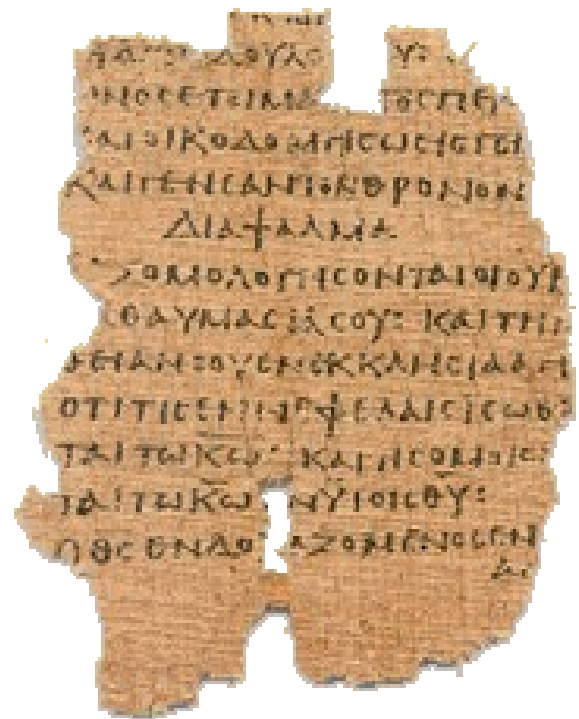 ΔΟΥΛΟ Υ:
ΝΟCΕΤΟΙΜΑ ΤΟCΠΕΡ
ΚΑΙΟΙΚΟΔΟΜΗCΩCΙCΓΕΝ
ΚΑΙΓΕΝΕΑΝΤΟΝΘΡΟΝΟΝ
ΔΙΑΨΑΛΜΑ
ΞΟΜΟΛΟΓΗCΟΝΤΑΙΟΙΟΥΡ
ΘΑΥΜΑCΙΑCΟΥ: ΚΑΙΤΗΝ
ΘΕΙΑΝCΟΥΕΝΕΚΚΛΗCΙΑΑΓΙ
ΟΤΙΤΙCΕΝΝΕΦΕΛΑΙCΙCΩΘ
ΤΑΙΤΩΚ̅Ω̅: ΚΑΙΤΙCΟΜΟΙΩ
ΤΑΙΤΩΚ̅Ω̅ ΝΥΙΟΙCΘ̅Υ̅:
ΟΘ̅C̅ΕΝΔΟ ΑΖΟΜΕΝΟCΕΝ